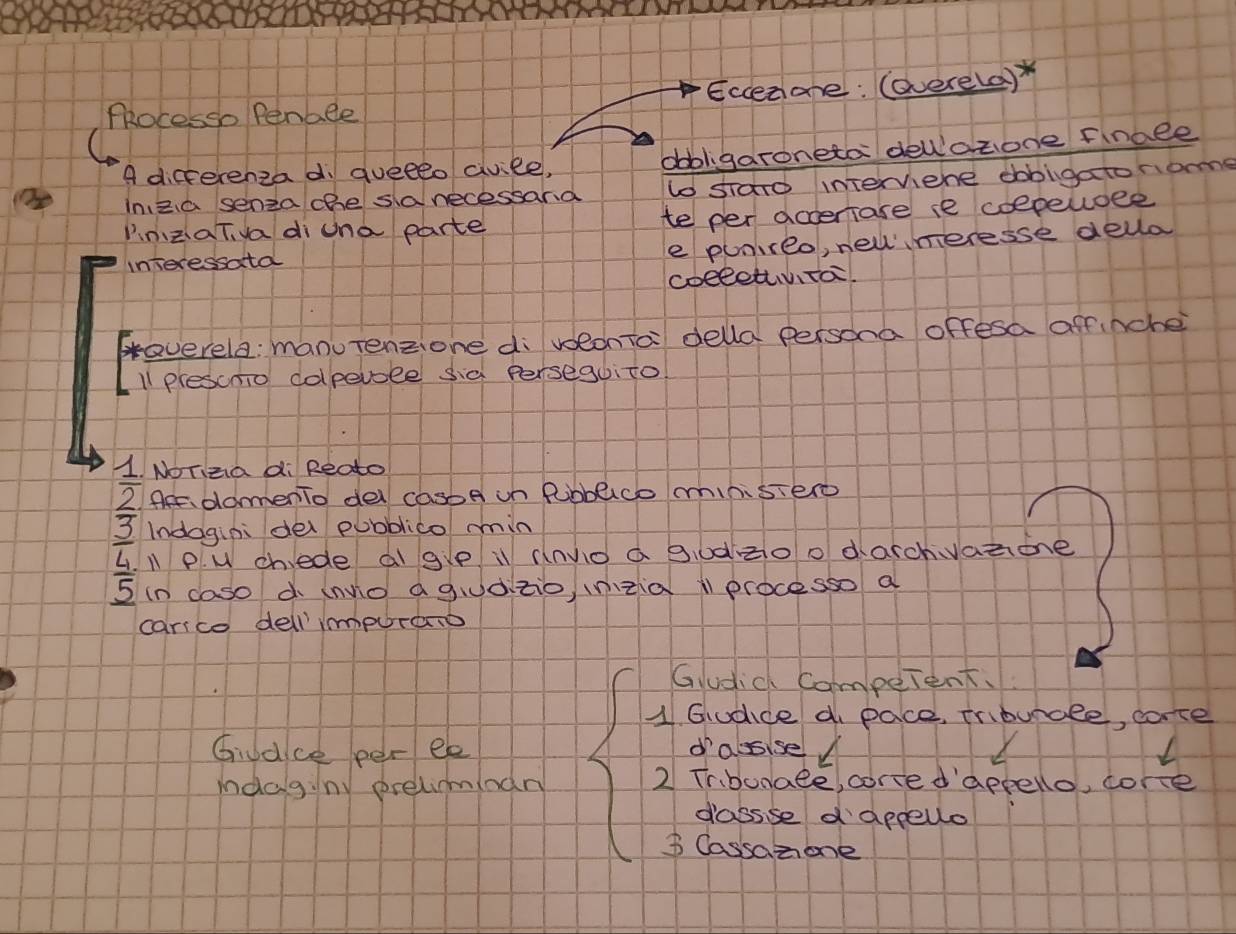 Processo Penale
Eccezione: (Querela)*
A differenza di quello civile,
inizia senza che sia necessaria
l'iniziativa di una parte
interessata
obbligaroneta dell'azione finale
lo stato interviene obbligatoriame
te per accertare se colpevole
e punirlo, nell'interesse della
collettività.
*querela: manutenzione di volontà della persona offesa affinché
il prescritto colpevole sia perseguito
1. Notizia di Reato
2 Affidamento del caso a un Pubblico ministero
3 Indagini del pubblico min
4. Il P.M chiede al gip il rinvio a giudizio o d'archivazione
5 in caso di invio a giudizio, inizia il processo a
carico dell'imputato
Giudice per le
indagini preliminari
Giudici Competenti:
1 Giudice di pace, tribunale, corte
d'assise
2 Tribunale, corte d'appello, corte
d'assise d'appello
3 Cassazione